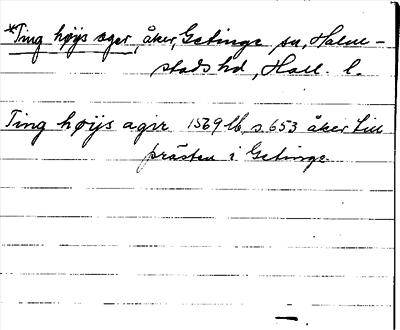 *Ting høijs ager, åker, Getinge sn, Halm-
stads hd, Hall. l.
Ting høijs ager 1569 lb, s. 653 åker till
prästen i Getinge